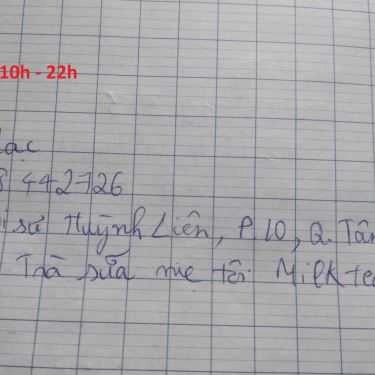 10h - 22h
Lạc
8 442726
sứ Huỳnh Liên, P.10, Q. Tân
Trà sữa mẹ tôi Milk tea